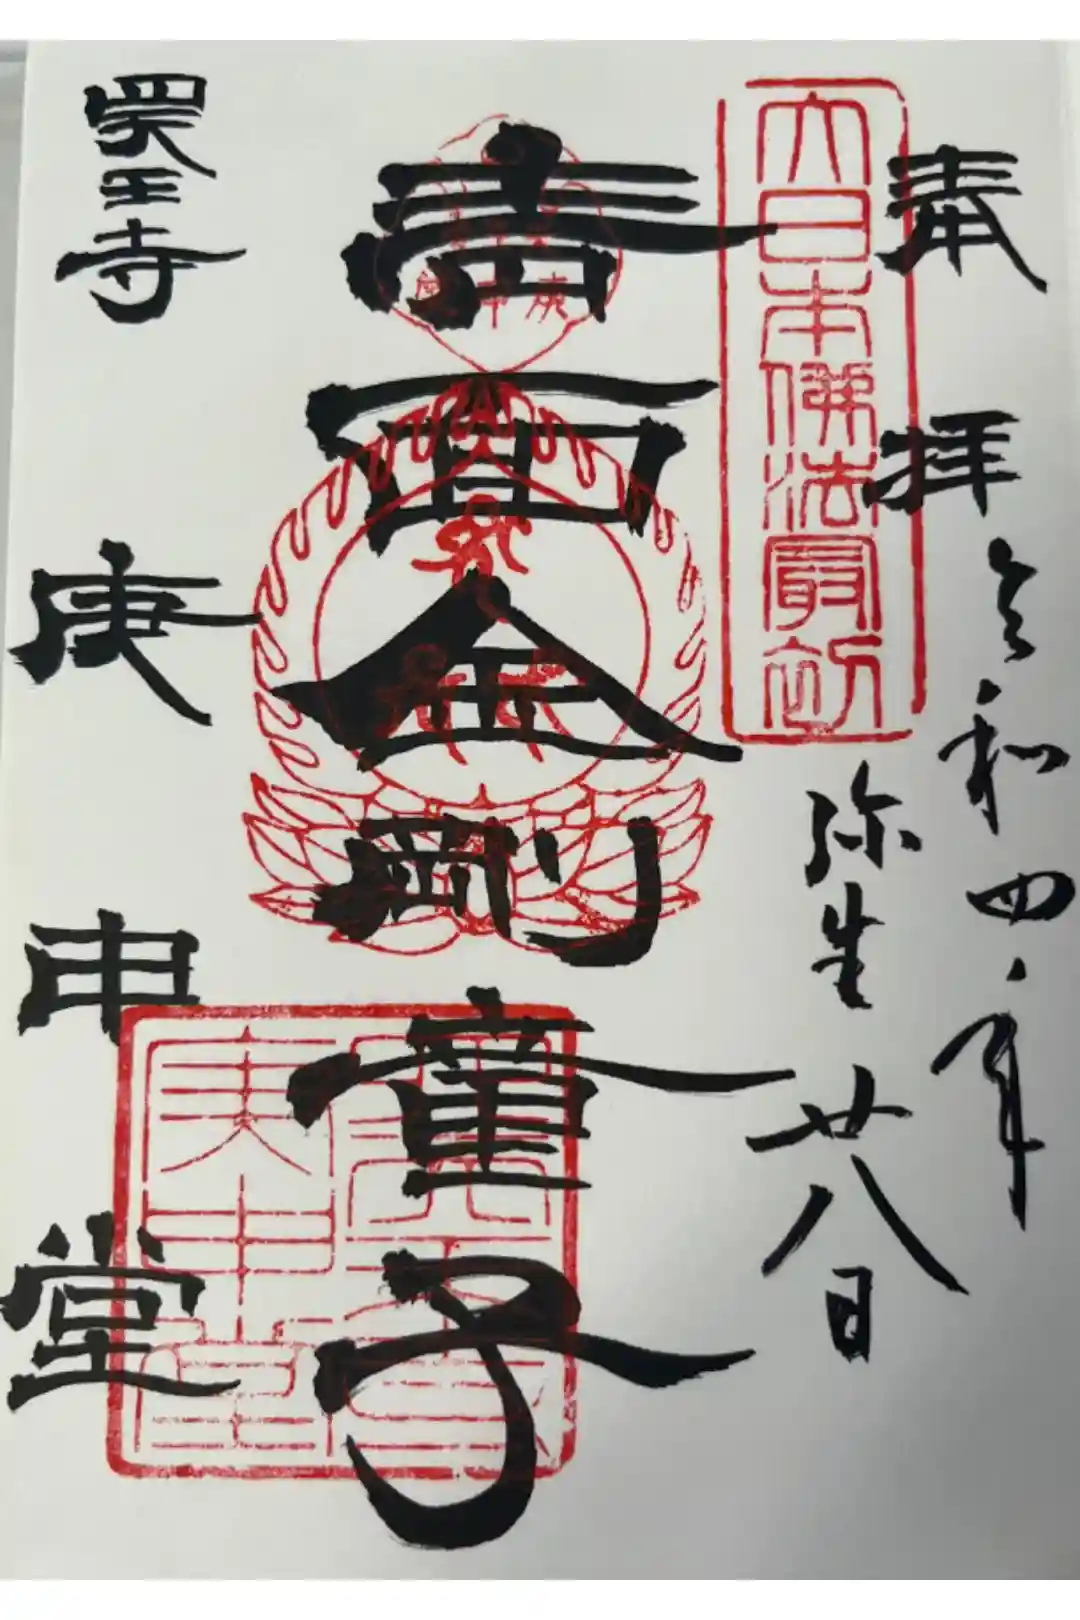 奉拝
令和四年
弥生廿八日
大日本佛法最初
青面金剛童子
四天王寺
庚申堂
庚申堂